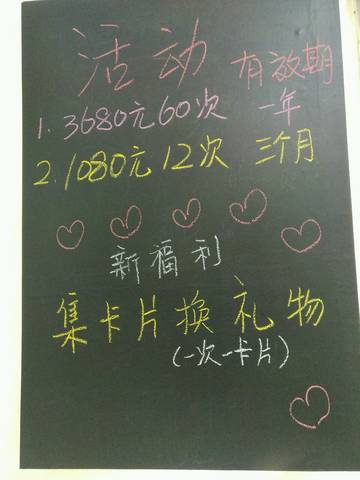 活动 有效期
1.3680元60次 一年
2.1080元12次 三个月
新福利
集卡片换礼物
(一次一卡片)